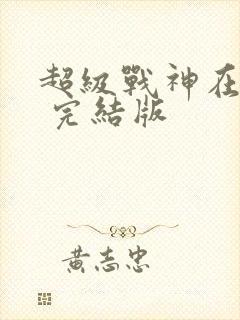 超級戰神在
完結版
黃志忠